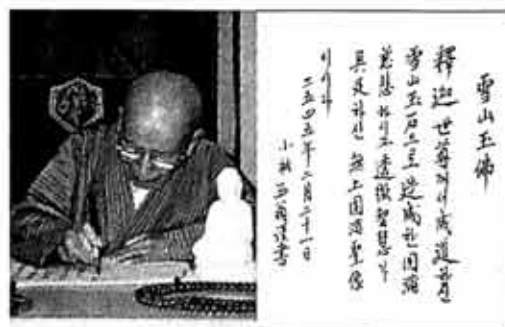 雪山玉佛
釋迦世尊께서 成道하신
雪山玉石으로 造成한 圓滿
慈悲하시고 透徹智慧가
具足하신 無上圓滿聖像
이시다
二五四五年二月二十一日
小林